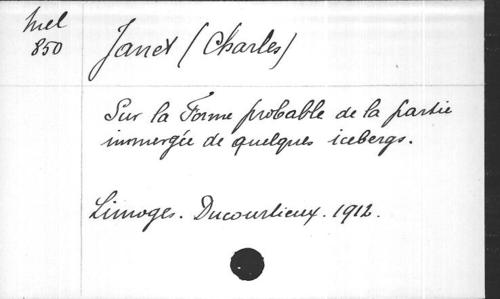 Mel
850
Janet (Charles)
Sur la Forme probable de la partie
immergée de quelques icebergs.
Limoges. Ducourtieux. 1912.